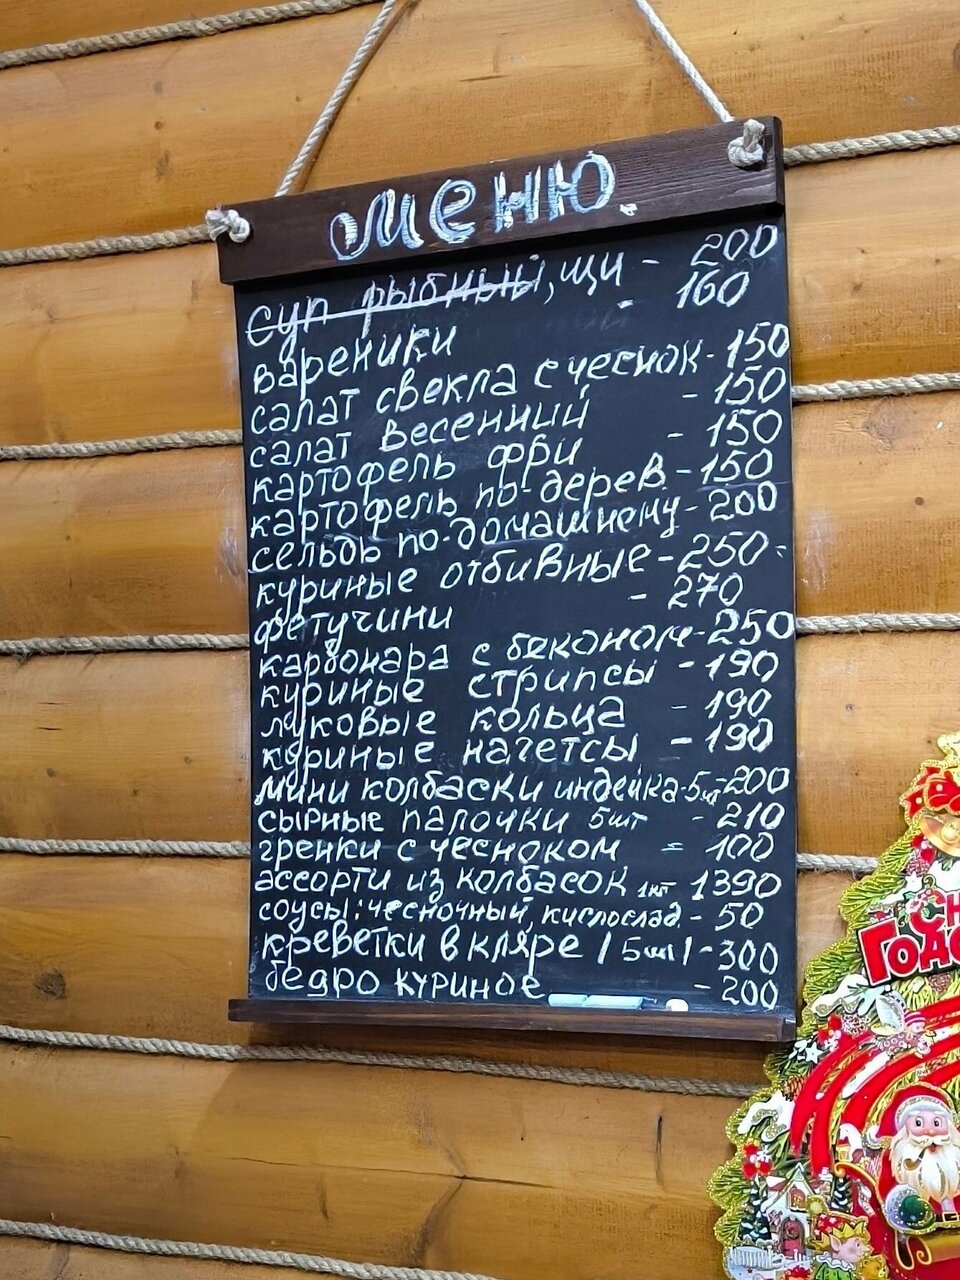 меню.
суп рыбный, щи - 200
вареники - 160
салат свекла с чеснок - 150
салат весенний - 150
картофель фри - 150
картофель по-дерев. - 150
сельдь по-домашнему - 200
куриные отбивные - 250-
фетучини - 270
карбонара с беконом - 250
куриные стрипсы - 190
луковые кольца - 190
куриные нагетсы - 190
мини колбаски индейка - 5шт - 200
сырные палочки 5шт - 210
гренки с чесноком = 100
ассорти из колбасок 1кг 1390
соусы: чесночный, кислослад. - 50
креветки в кляре /5шт/ - 300
бедро куриное - 200